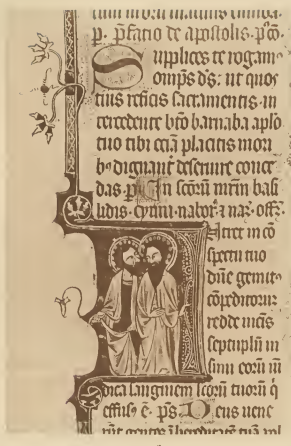 p. p̄fatio de apostolis. p'cō.
Supplices te rogam⁹
omp̄s d̄s: ut quos
tuis reficis sacramentis. in
tercedente btō barnaba aplo
tuo tibi eciā placitis mori
b⁹ dignant̄ deseruire conce
das. p In scōrū mr̄in basi
lidis. cyrini. nabor⁹ ⁊ naz. offz̄.
Intret in cō
spectu tuo
dn̄e gemit⁹
cōpeditorū:
redde uicīs
septuplū in
sinu eorū ui
dica sanguinem scorū tuorū q̄
effus⁹ ē. p̄s Deus uene